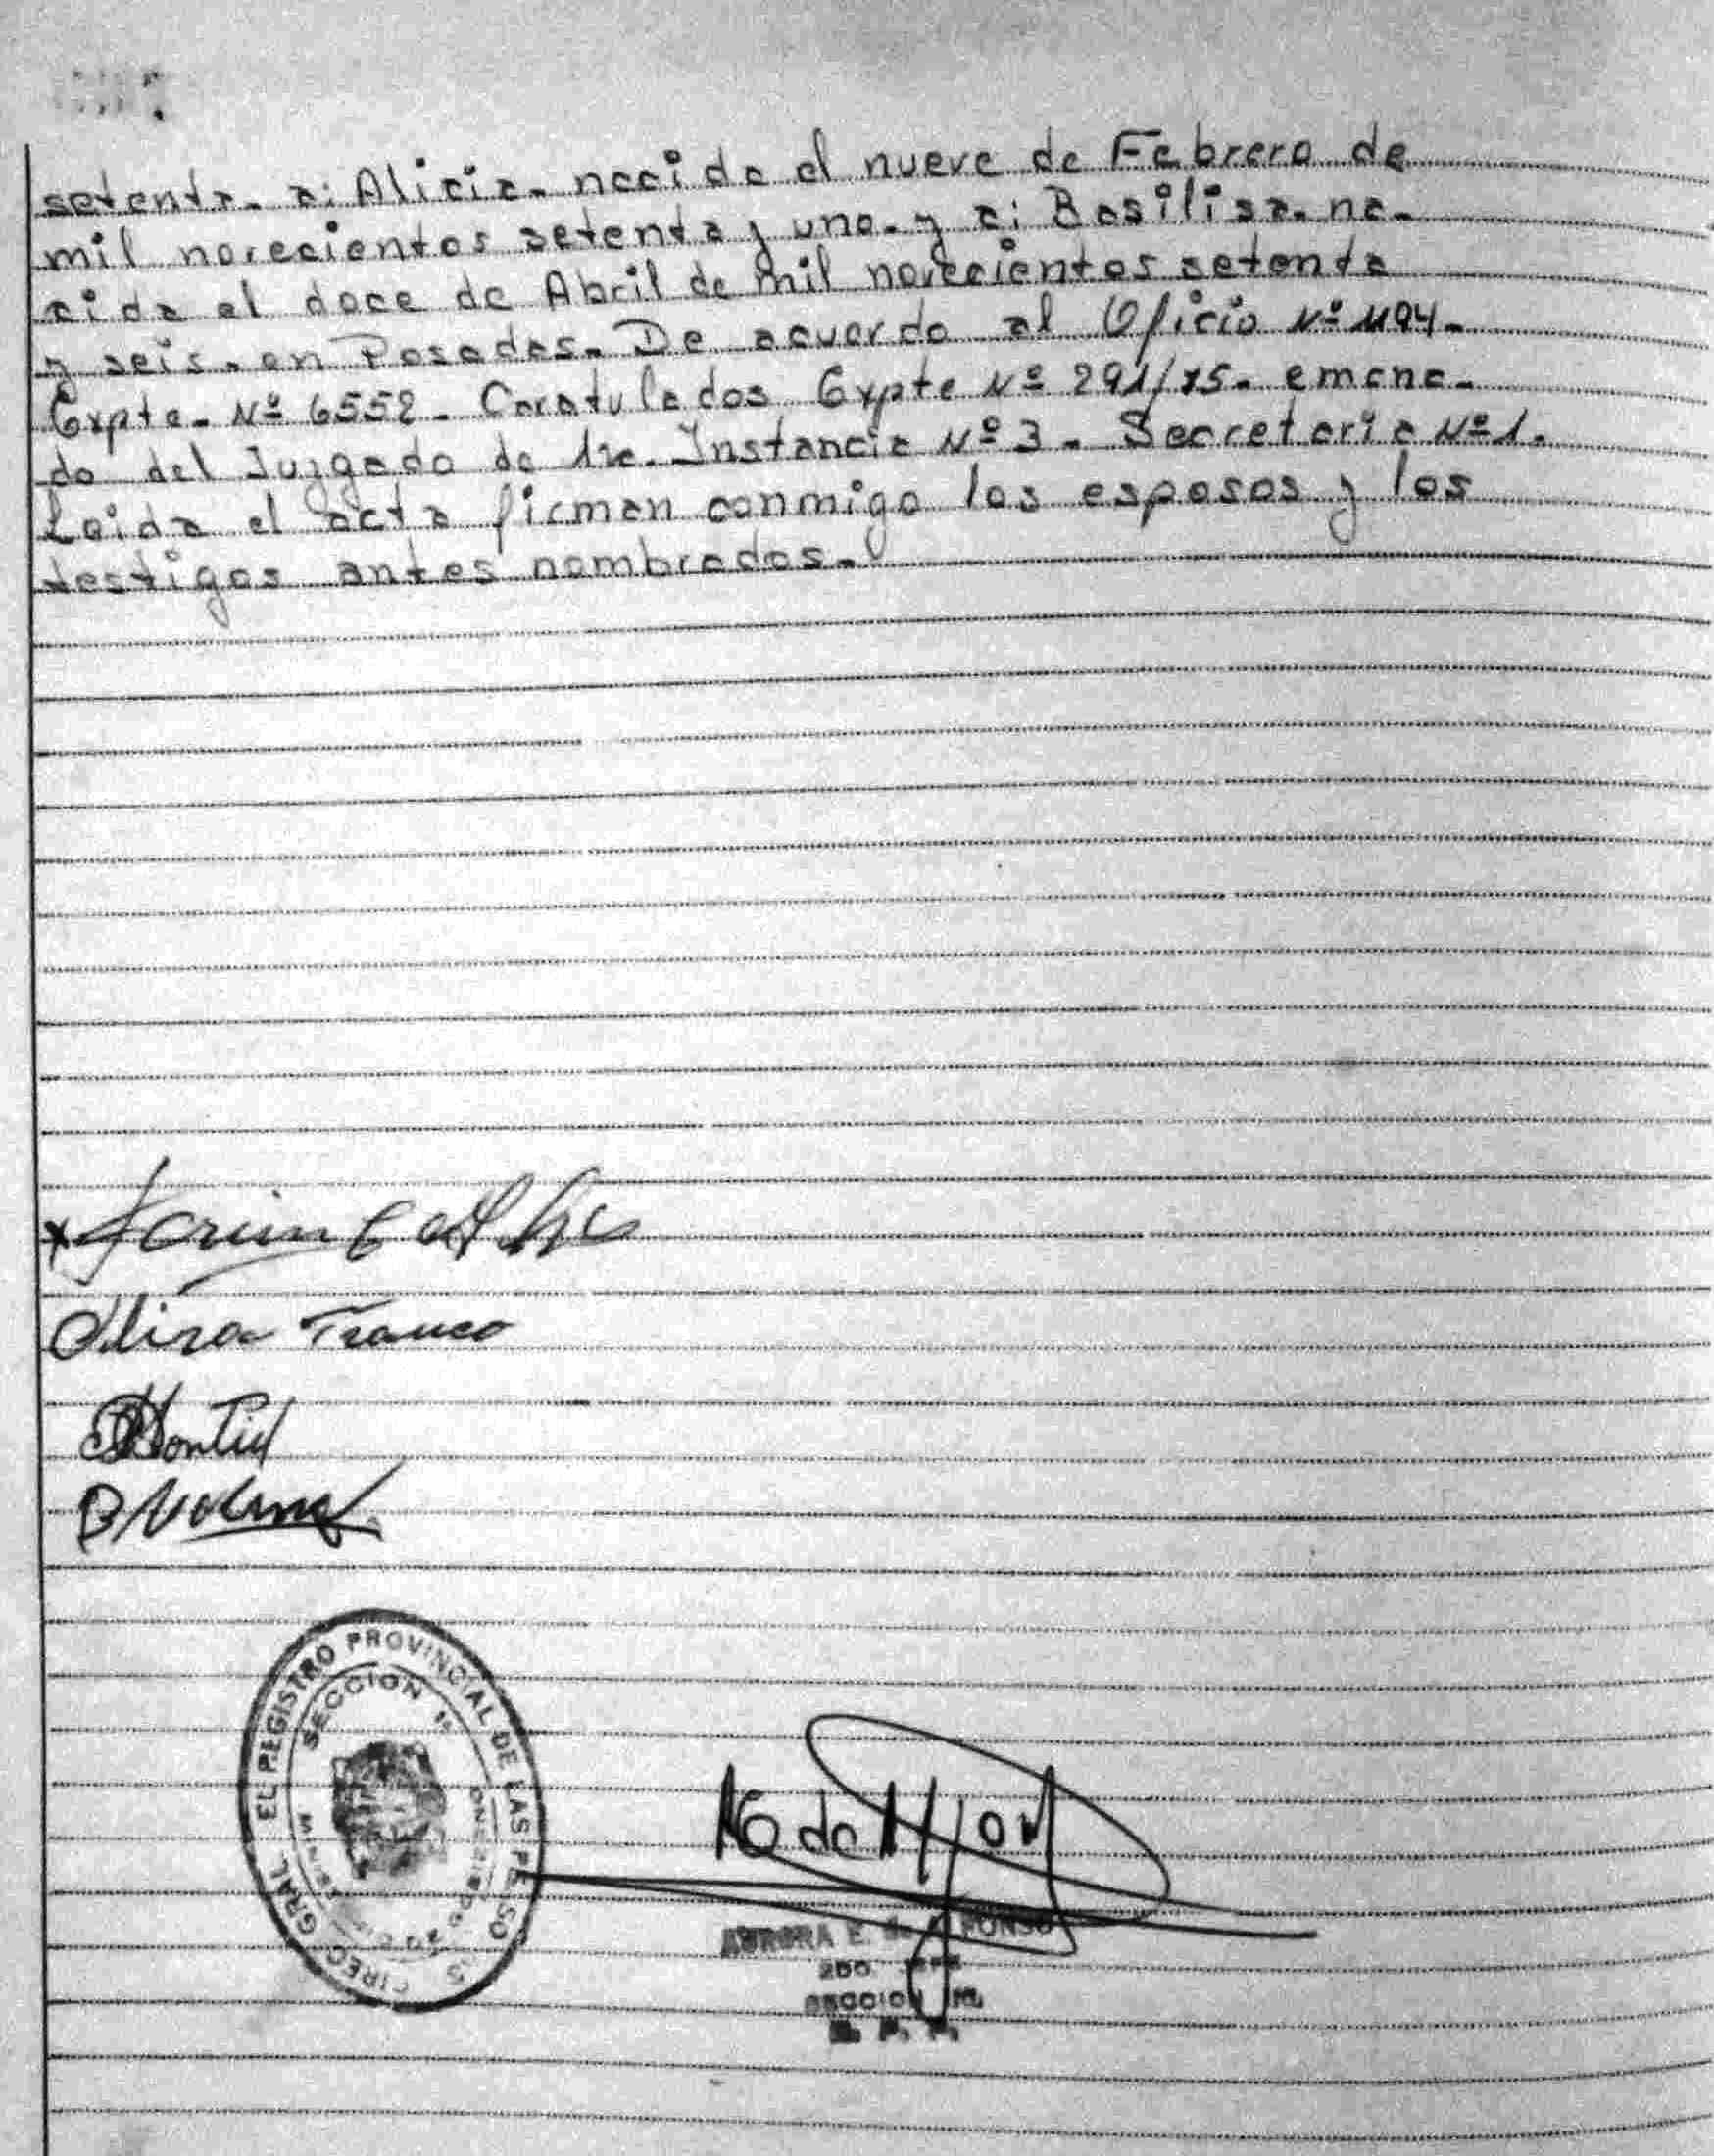 setenta. a: Alicia. nacida el nueve de Febrero de
mil novecientos setenta y uno. y a: Basilisa. na-
cida el doce de Abril de mil novecientos setenta
y seis. en Posadas. De acuerdo al Oficio Nº 1194.
Expte. Nº 6552. Caratulados Expte Nº 291/75. emana-
do del Juzgado de 1ra. Instancia Nº 3. Secretaria Nº 1.
Leida el acta firman conmigo los esposos y los
testigos antes nombrados.
Franco
Montiel
DIREC. GRAL. EL REGISTRO PROVINCIAL DE LAS PERSO
SECCION 1a
AURORA E. de ALFONSO
2DO. JEFE
SECCION 1a.
R. P. P.